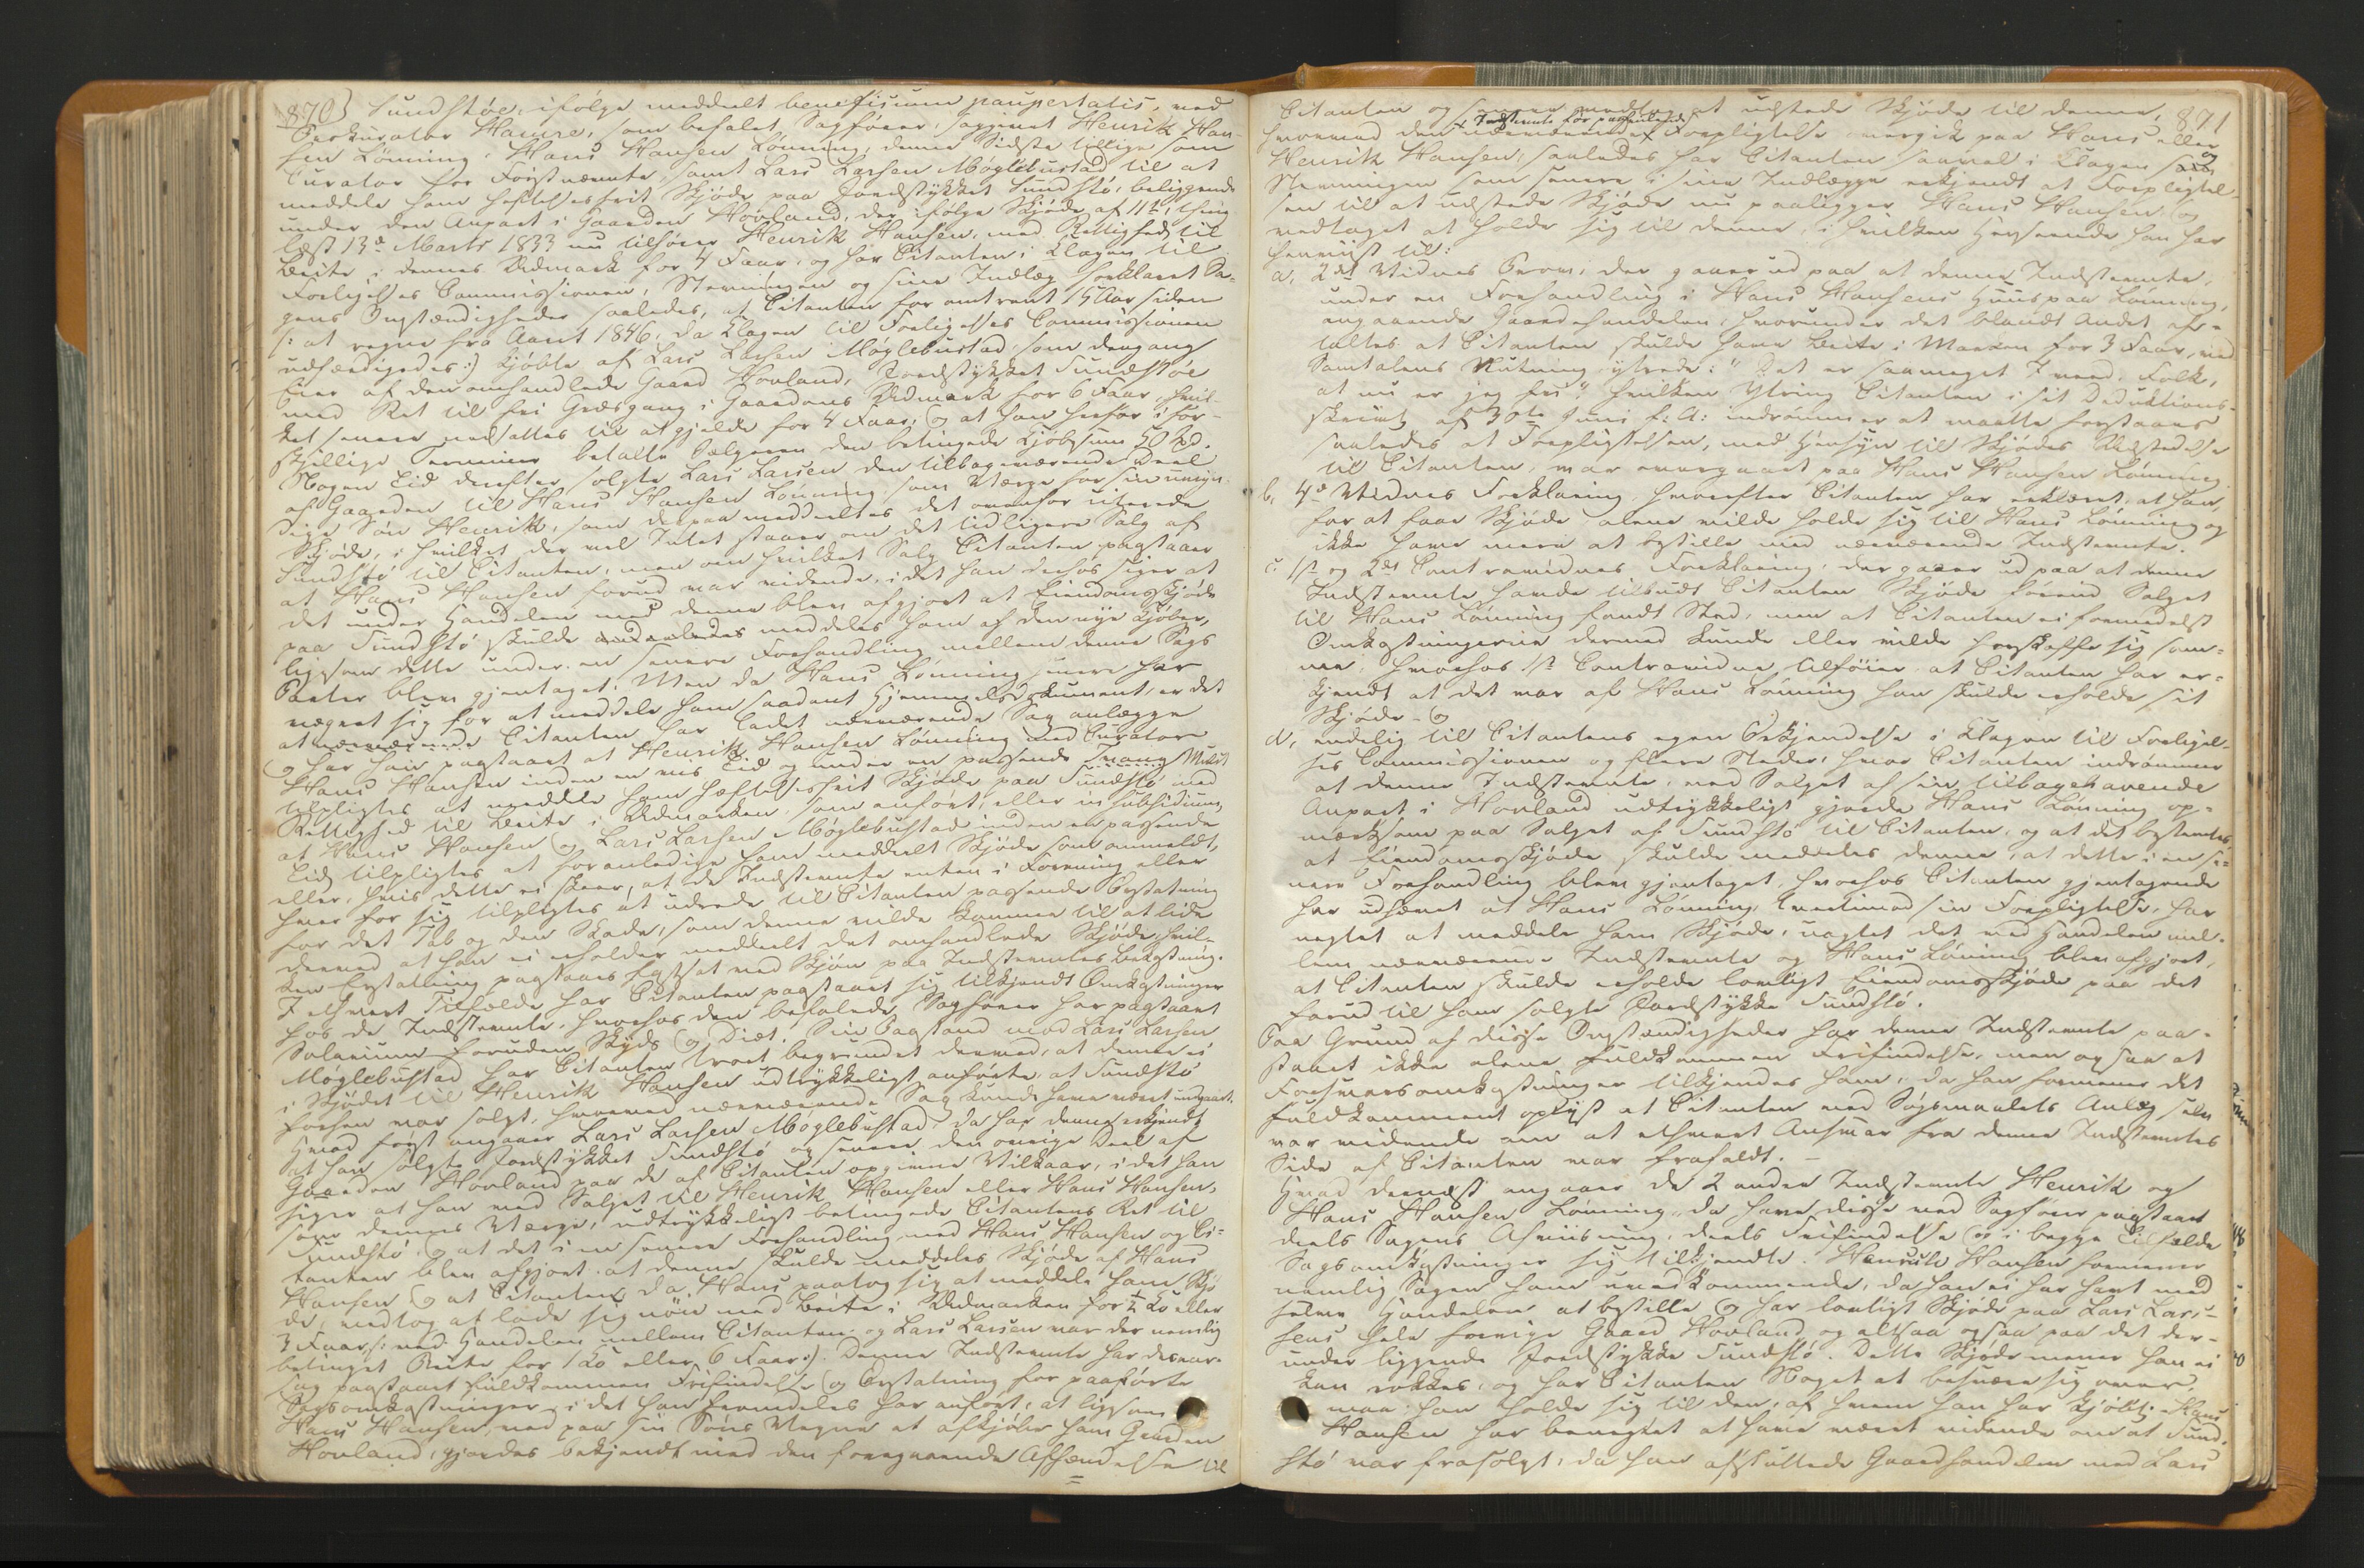 870) Sundstøe, ifølge meddeelt beneficium paupertatis, ved
Prokurator Hamre, som befalet Sagfører, sagsøgt Henrik Han-
sen Lønning, Hans Hansen Lønning, denne Sidste tillige som
Curator for Førstnævnte, samt Lars Larsen Møglebustad til at
meddele ham heftelsesfrit Skjøde paa Jordstykket Sundstø, beliggende
under den Anpart i Gaarden Hovland, der ifølge Skjøde af 11te, thing-
læst 13de Marts 1833 nu tilhører Henrik Hansen, med Rettighed til
Beite i dennes Udmark for 4 Faar, og har Citanten i Klagen til
Forligelses Commissionen, Stevningen og sine Indlæg forklaret Sa-
gens Omstændigheder saaledes, at Citanten for omtrent 15 Aar siden
/: at regne fra Aaret 1846, da Klagen til Forligelses Commissionen
udfærdigedes :/ kjøbte af Lars Larsen Møglebustad, som dengang
Eier af den omhandlede Gaard Hovland, Jordstykket Sundstøe
med Ret til fri Græsgang i Gaardens Udmark for 6 Faar, hvil-
ket senere nedsattes til at gjelde for 4 Faar; og at han herfor i for-
skjellige Terminer betalte Sælgeren den betingede Kjøbesum 50 Spd.
Nogen Tid derefter solgte Lars Larsen den tilbageværende Deel
af Gaarden til Hans Hansen Lønning som Værge for sin umyn-
dige Søn Henrik, som derpaa meddeeltes det ovenfor citerede
Skjøde, i hvilket der vel Intet staaer om det tidligere Salg af
Sundstø til Citanten, men om hvilket Salg Citanten paastaaer
at Hans Hansen forud var vidende, idet han derhos siger at
det under Handelen med denne blev afgjort at Eiendomsskjøde
paa Sundstø skulde meddeles ham af den nye Kjøber,
ligesom dette under en senere Forhandling mellem denne Sags
Parter blev gjentaget. Men da Hans Lønning senere har
vægret sig for at meddele ham saadant Hjemmelsdokument, er det
at Citanten har ladet nærværende Sag anlægge
og har han paastaaet at Henrik Hansen Lønning med Curator
Hans Hansen inden en vis Tid og under en passende Tvangs Mulct
tilpligtes at meddele ham heftelsesfrit Skjøde paa Sundstø med
Rettighed til Beite i Udmarken, som anført, eller in subsidium,
at Hans Hansen og Lars Larsen Møglebustad inden en passende
Tid tilpligtes at foranledige ham meddeelt Skjøde som anmeldt,
eller, hvis dette ei skeer, at de Indstevnte enten i Forening eller
hver for sig tilpligtes at udrede til Citanten passende Erstatning
for det Tab og den Skade, som denne vilde komme til at lide
derved at han ei erholder meddeelt det omhandlede Skjøde, hvil-
ken Erstatning paastaaes fastsat ved Skjøn paa Indstevntes Bekostning.
I ethvert Tilfælde har Citanten paastaaet sig tilkjendt Omkostninger
hos de Indstevnte, hvorhos den befalede Sagfører har paastaaet
Salarium foruden Skyds og Diæt. Sin Paastand mod Lars Larsen
Møglebustad har Citanten troet begrundet derved, at denne ei
i Skjødet til Henrik Hansen udtrykkeligt anførte, at Sundstø
forhen var solgt, hvorved nærværende Sag kunde have været undgaaet.
Hvad først angaaer Lars Larsen Møglebustad, da har denne erkjendt
at han solgte Jordstykket Sundstø og senere den øvrige Deel af
Gaarden Hovland paa de af Citanten opgivne Vilkaar, idet han
siger at han ved Salget til Henrik Hansen eller Hans Hansen,
som dennes Værge, udtrykkeligt betingede Citantens Ret til
Sundstø og at det i en senere Forhandling med Hans Hansen og Ci-
tanten blev afgjort at denne skulde meddeles Skjøde af Hans
Hansen og at Citanten, da Hans paatog sig at meddele ham Skjø-
de, vedtog at lade sig nøie med Beite i Udmarken for ½ Ko eller
3 Faar /: ved Handelen mellem Citanten og Lars Larsen var der nemlig
betinget Beite for 1 Ko eller 6 Faar :/. Denne Indstevnte har desaar-
sag paastaaet fuldkommen Frifindelse og Erstatning for paaførte
Sagsomkostninger, idet han fremdeles har anført, at ligesom
Hans Hansen, ved paa sin Søns Vegne at afkjøbe ham Gaarden
Hovland, gjordes bekjendt med den foregaaende Afhændelse til
871
Citanten og senere vedtog at udstede Skjøde til denne,
hvorved den Indstevnte før paahvilende Forpligtelse overgik paa Hans eller
Henrik Hansen, saaledes har Citanten saavel i Klagen og
Stevningen som senere i sine Indlægge erkjendt at Forpligtel-
sen til at udstede Skjøde nu paaligger Hans Hansen og
vedtaget at holde sig til denne, i hvilken Henseende han har
henviist til:
a, 2det Vidnes Prov, der gaaer ud paa at denne Indstevnte,
under en Forhandling i Hans Hansens Huus paa Lønning,
angaaende Gaardehandelen, hvorunder det blandt Andet af-
taltes at Citanten skulde have Beite i Marken for 3 Faar, ved
Samtalens Slutning yttrede: "Det er saameget I veed, Folk,
at nu er jeg fri", hvilken Yttring Citanten i sit Deduktions-
skrivt af 30te Juni f. A. indrømmer at maatte forstaaes
saaledes at Forpligtelsen, med Hensyn til Skjødes Udstedelse
til Citanten, var overgaaet paa Hans Hansen Lønning.
b, 4de Vidnes Forklaring, hvorefter Citanten har erklæret, at han,
for at faae Skjøde, alene vilde holde sig til Hans Lønning og
ikke have mere at bestille med nærværende Indstevnte.
c, 1ste og 2det Contravidnes Forklaring, der gaaer ud paa at denne
Indstevnte havde tilbudt Citanten Skjøde førend Salget
til Hans Lønning fandt Sted, men at Citanten ei formedelst
Omkostningerne dermed kunde eller vilde forskaffe sig sam-
me, hvorhos 1ste Contravidne tilføier at Citanten har er-
kjendt at det var af Hans Lønning han skulde erholde sit
Skjøde - og
d, endelig til Citantens egen Erkjendelse i Klagen til Forligel-
ses Commissionen og flere Steder, hvor Citanten indrømmer
at denne Indstevnte, ved Salget af sin tilbagehavende
Anpart i Hovland udtrykkeligt gjorde Hans Lønning op-
mærksom paa Salget af Sundstø til Citanten, og at det bestemtes,
at Eiendomsskjøde skulde meddeles denne, at dette i en se-
nere Forhandling blev gjentaget, hvorhos Citanten gjentagende
har udhævet at Hans Lønning, tvertimod sin Forpligtelse, har
negtet at meddele ham Skjøde, uagtet det ved Handelen mel-
lem nærværende Indstevnte og Hans Lønning blev afgjort,
at Citanten skulde erholde lovligt Eiendomsskjøde paa det
forud til ham solgte Jordstykke Sundstø.
Paa Grund af disse Omstændigheder har denne Indstevnte paa-
staaet ikke alene fuldkommen Frifindelse, men ogsaa at
Forsvarsomkostninger tilkjendes ham, da han formener det
fuldkomment oplyst at Citanten ved Søgsmaalets Anlæg selv
var vidende om at ethvert Ansvar fra denne Indstevntes
Side af Citanten var frafaldt. —
Hvad dernæst angaaer de 2 andre Indstevnte Henrik og
Hans Hansen Lønning, da have disse ved Sagfører paastaaet
deels Sagens Afviisning, deels Frifindelse og i begge Tilfælde
Sagsomkostninger sig tilkjendte. Henrik Hansen formener
nemlig Sagen ham uvedkommende, da han ei har havt med
selve Handelen at bestille og har lovligt Skjøde paa Lars Lar-
sens hele forrige Gaard Hovland og altsaa ogsaa paa det der-
under liggende Jordstykke Sundstø. Dette Skjøde mener han ei
kan rokkes, og har Citanten Noget at besvære sig over,
maa han holde sig til den, af hvem han har kjøbt; Hans
Hansen har benegtet at have været vidende om at Sund-
stø var frasolgt, da han afsluttede Gaardhandelen med Lars